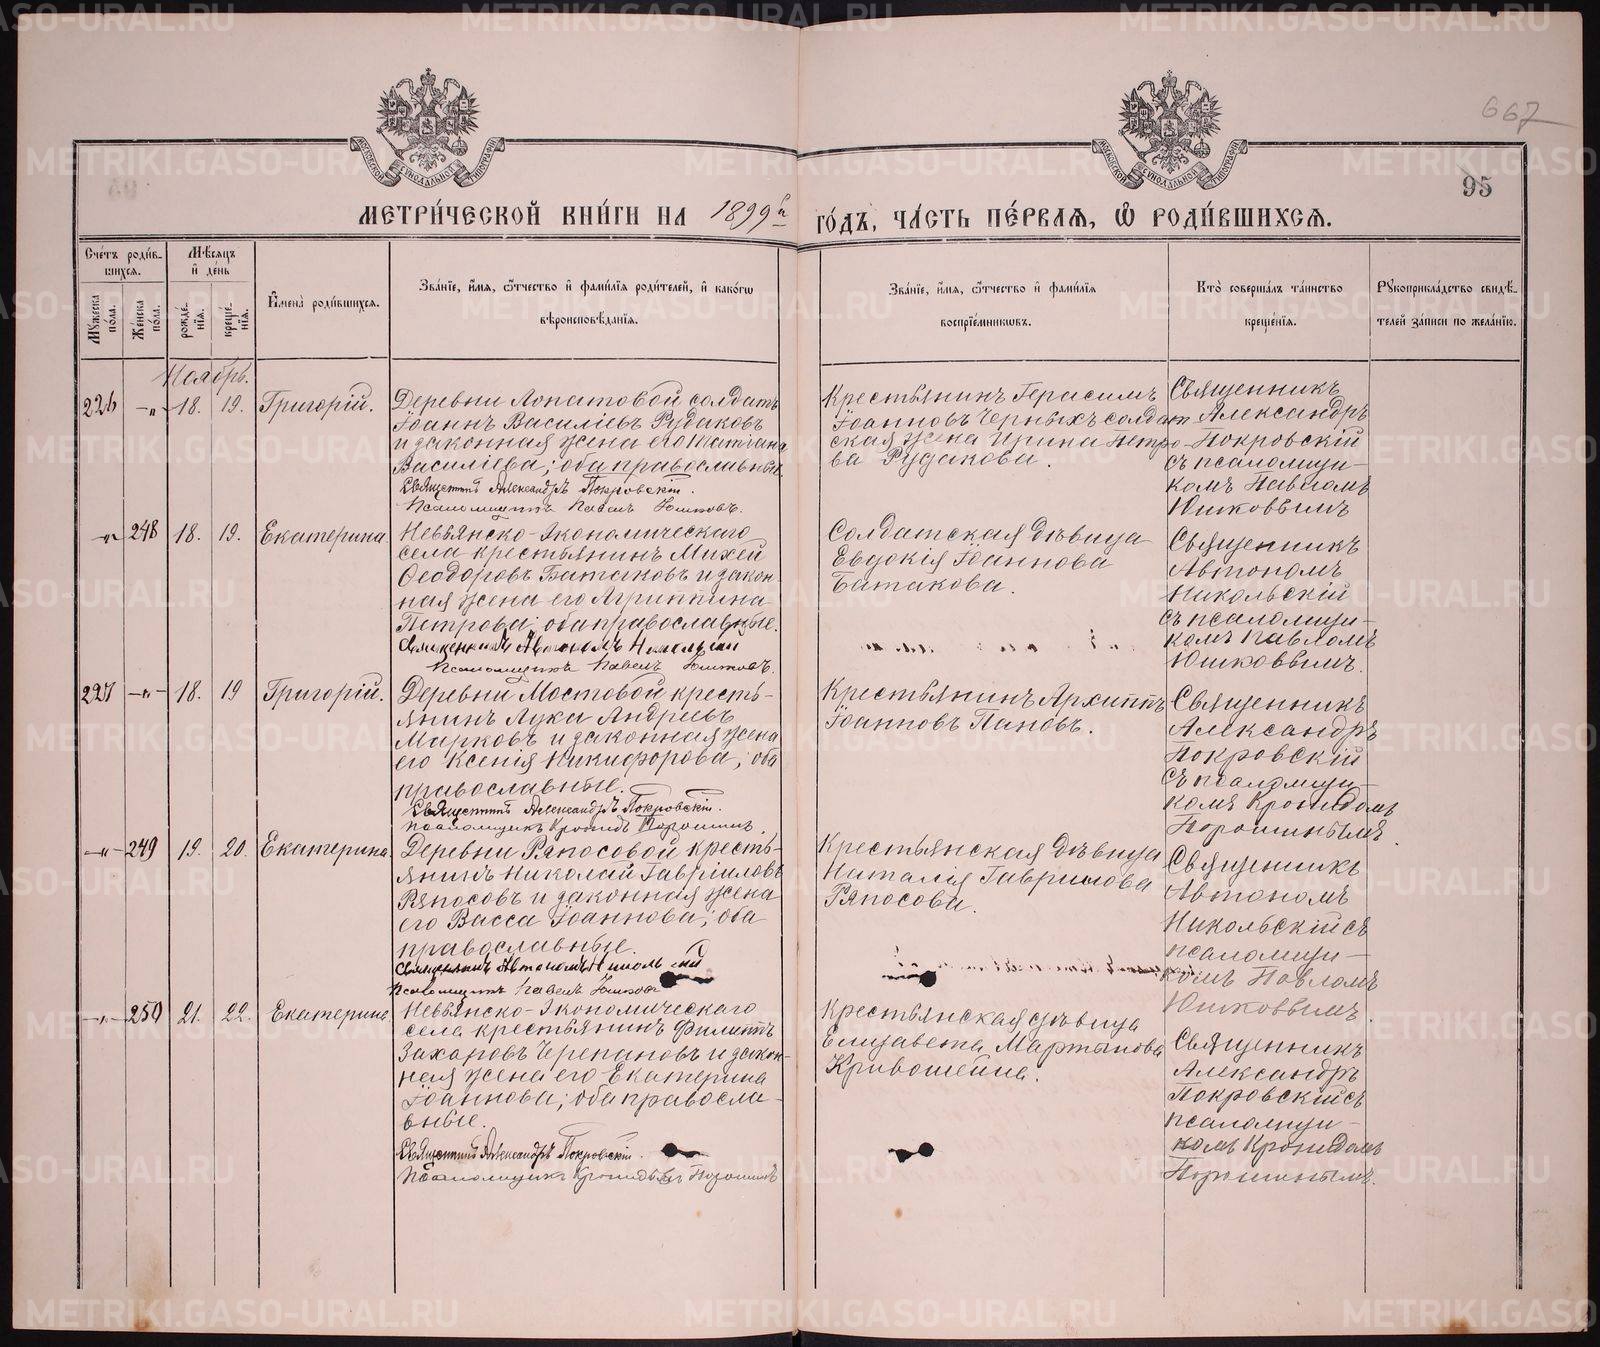 667
95
МЕТРИ́ЧЕСКОЙ КНИ́ГИ НА 1899й ГО́ДЪ, ЧА́СТЬ ПЕ́РВАѦ, Ѡ҆ РОДИ́ВШИХСѦ.
Сче́тъ роди́в-
шихся.
Мѣ́сяцъ
и҆ де́нь
Мꙋ́жеска
по́ла.
Же́нска
по́ла.
рожде́-
нїя.
креще́-
нїя.
И҆мена̀ роди́вшихся.
Зва́нїе, и҆́мя, ѻ҆́тчество и҆ фами́лїя роди́телей, и҆ како́гѡ
вѣроисповѣ́данїя.
Зва́нїе, и҆́мя, ѻ҆́тчество и҆ фами́лїя
воспрїе́мникѡвъ.
Кто̀ соверша́лъ та́инство
креще́нїя.
Рꙋкоприкла́дство свидѣ́-
телей за́писи по жела́нїю.
Ноябрь.
226 -„- 18. 19. Григорій.
Деревни Лопатовой солдатъ
Іоаннъ Василіевъ Рудаковъ
и законная жена его Татіана
Василіева; оба православные.
Священникъ Александръ Покровскій.
Псаломщикъ Павелъ Юшковъ.
Крестьянинъ Герасимъ
Іоанновъ Черныхъ солдат-
ская жена Ирина Петро-
ва Рудакова.
Священникъ
Александръ
Покровскій
съ псаломщи-
комъ Павломъ
Юшковымъ
-„- 248 18. 19. Екатерина
Невьянско-Экономическаго
села крестьянинъ Михей
Ѳеодоровъ Батаковъ и закон-
ная жена его Агриппина
Петрова; оба православные.
Священникъ Автономъ Никольскій
Псаломщикъ Павелъ Юшковъ.
Солдатская дѣвица
Евдокія Іоаннова
Батакова.
Священникъ
Автономъ
Никольскій
съ псаломщи-
комъ Павломъ
Юшковымъ.
227 -„- 18. 19 Григорій.
Деревни Мостовой кресть-
янинъ Лука Андреевъ
Марковъ и законная жена
его Ксенія Никифорова; оба
православные.
Священникъ Александръ Покровскій.
Псаломщикъ Кронидъ Порошинъ.
Крестьянинъ Архиппъ
Іоанновъ Пановъ.
Священникъ
Александръ
Покровскій
съ псаломщи-
комъ Кронидомъ
Порошинымъ.
-„- 249 19. 20. Екатерина.
Деревни Ряпосовой кресть-
янинъ Николай Гавріиловъ
Ряпосовъ и законная жена
его Васса Іоаннова; оба
православные.
Священникъ Автономъ Никольскій
Псаломщикъ Павелъ Юшковъ
Крестьянская дѣвица
Наталія Гаврилова
Ряпосова.
Священникъ
Автономъ
Никольскій съ
псаломщи-
комъ Павломъ
Юшковымъ.
-„- 250 21. 22. Екатерина.
Невьянско-Экономическаго
села крестьянинъ Филиппъ
Захаровъ Черепановъ и закон-
ная жена его Екатерина
Іоаннова; оба правосла-
вные.
Священникъ Александръ Покровскій.
Псаломщикъ Кронидъ Порошинъ
Крестьянская дѣвица
Елизавета Мартынова
Кривошеина.
Священникъ
Александръ
Покровскій съ
псаломщи-
комъ Кронидомъ
Порошинымъ.
METRIKI.GASO-URAL.RU